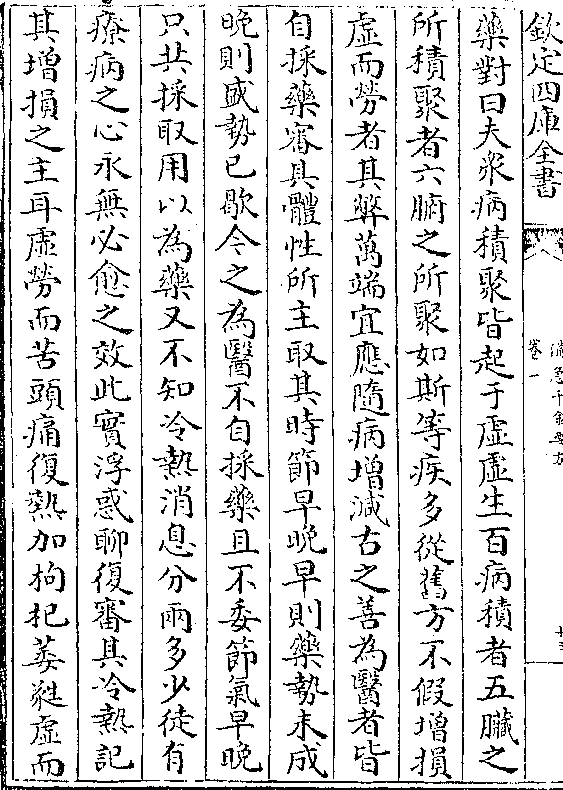 欽定四庫全書
備急千金要方
卷一
十三
藥對曰夫衆病積聚皆起于虛虛生百病積者五臟之
所積聚者六腑之所聚如斯等疾多從舊方不假增損
虛而勞者其弊萬端宜應隨病增減古之善為醫者皆
自採藥審其體性所主取其時節早晚早則藥勢未成
晚則盛勢已歇今之為醫不自採藥且不委節氣早晚
只共採取用以為藥又不知冷熱消息分兩多少徒有
療病之心永無必愈之效此實浮惑聊復審其冷熱記
其增損之主耳虛勞而苦頭痛復熱加枸杞萎蕤虛而